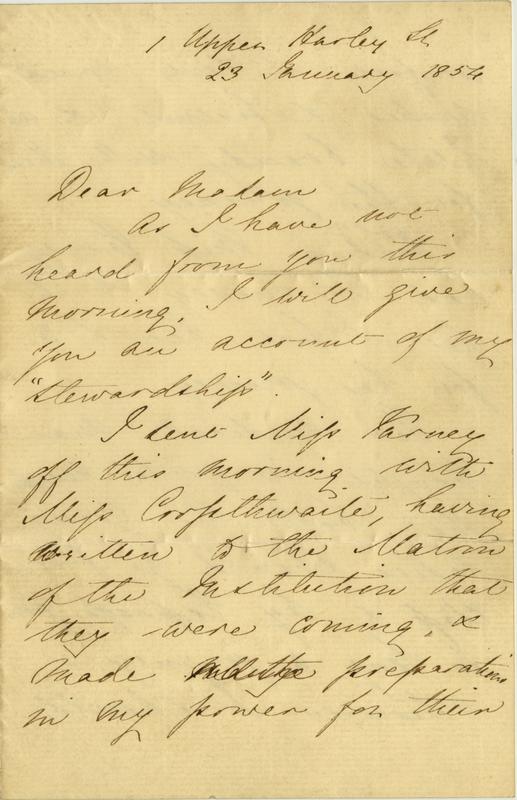 1 Upper Harley St
23 January 1854
Dear Madam
As I have not
heard from you this
morning, I will give
you an account of my
"stewardship".
I sent Miss Varney
off this morning with
Miss Corfsthwaite, having
written to the Matron
of the Institution that
they were coming, &
made preparations
in my power for their